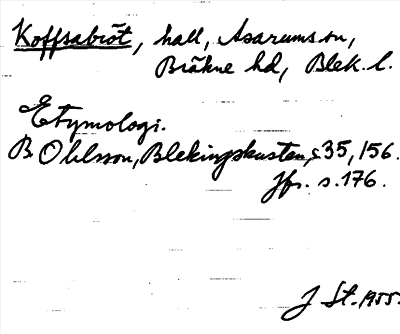 Koffsabröt, hall, Asarums sn,
Bräkne hd, Blek. l.
Etymologi.
B Ohlsson, Blekingskusten, s 35, 156.
Jfr. s. 176.
J St. 1955.